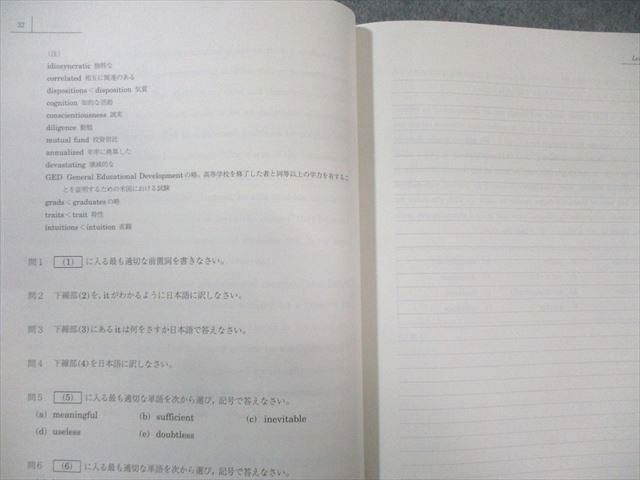 32
(注)
idiosyncratic 独特な
correlated 相互に関連のある
dispositions < disposition 気質
cognition 知的な活動
conscientiousness 誠実
diligence 勤勉
mutual fund 投資信託
annualized 年率に換算した
devastating 壊滅的な
GED General Educational Developmentの略。高等学校を修了した者と同等以上の学力を有するこ
とを証明するための米国における試験
grads < graduatesの略
traits < trait 特性
intuitions < intuition 直観
問1 (1) に入る最も適切な前置詞を書きなさい。
問2 下線部(2)を, itがわかるように日本語に訳しなさい。
問3 下線部(3)にあるitは何をさすか日本語で答えなさい。
問4 下線部(4)を日本語に訳しなさい。
問5 (5) に入る最も適切な単語を次から選び, 記号で答えなさい。
(a) meaningful (b) sufficient (c) inevitable
(d) useless (e) doubtless
問6 (6) に入る最も適切な単語を次から選び, 記号で答えなさい。